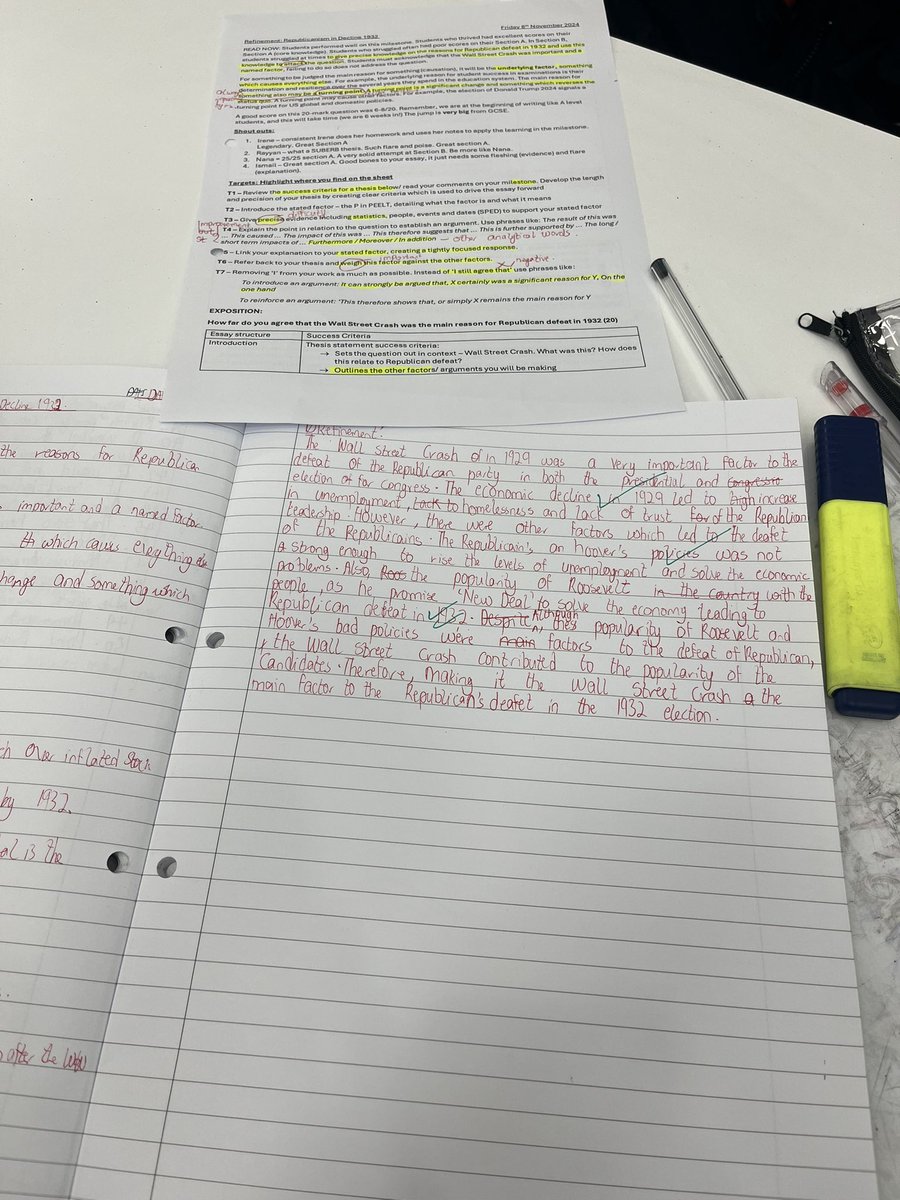 Friday 8th November 2024
Refinement: Republicanism in Decline 1932
READ NOW: Students performed well on this milestone. Students who thrived had excellent scores on their
Section A (core knowledge). Students who struggled often had poor scores on their Section A. In Section B,
students struggled at times to give precise knowledge on the reasons for Republican defeat in 1932 and use this
knowledge to attack the question. Students must acknowledge that the Wall Street Crash was important and a
named factor, failing to do so does not address the question.
For something to be judged the main reason for something (causation), it will be the underlying factor, something
which causes everything else. For example, the underlying reason for student success in examinations is their
determination and resilience over the several years they spend in the education system. The main reason for
something also may be a turning point. A turning point is a significant change and something which reverses the
status quo. A turning point may cause other factors. For example, the election of Donald Trump 2024 signals a
turning point for US global and domestic policies.
A good score on this 20-mark question was 6-8/20. Remember, we are at the beginning of writing like A level
students, and this will take time (we are 6 weeks in!) The jump is very big from GCSE.
Shout outs:
1. Irene – consistent Irene does her homework and uses her notes to apply the learning in the milestone.
Legendary. Great Section A
2. Rayyan – what a SUBERB thesis. Such flare and poise. Great section A.
3. Nana = 25/25 section A. A very solid attempt at Section B. Be more like Nana.
4. Ismail – Great section A. Good bones to your essay, it just needs some fleshing (evidence) and flare
(explanation).
Targets: Highlight where you find on the sheet
T1 – Review the success criteria for a thesis below/ read your comments on your milestone. Develop the length
and precision of your thesis by creating clear criteria which is used to drive the essay forward
T2 – Introduce the stated factor – the P in PEELT, detailing what the factor is and what it means
T3 – Give precise evidence including statistics, people, events and dates (SPED) to support your stated factor
T4 – Explain the point in relation to the question to establish an argument. Use phrases like: The result of this was
... This caused ... The impact of this was ... This therefore suggests that ... This is further supported by ... The long /
short term impacts of ... Furthermore / Moreover / In addition – other analytical words.
5 – Link your explanation to your stated factor, creating a tightly focused response.
important
T6 – Refer back to your thesis and weigh this factor against the other factors.
negative.
T7 – Removing 'I' from your work as much as possible. Instead of 'I still agree that' use phrases like:
To introduce an argument: It can strongly be argued that, X certainly was a significant reason for Y, On the
one hand
To reinforce an argument: 'This therefore shows that, or simply X remains the main reason for Y
EXPOSITION:
How far do you agree that the Wall Street Crash was the main reason for Republican defeat in 1932 (20)
Essay structure Success Criteria
Introduction Thesis statement success criteria:
→ Sets the question out in context – Wall Street Crash. What was this? How does
this relate to Republican defeat?
→ Outlines the other factors/ arguments you will be making
Decline 1932.
the reasons for Republican
important and a named factor
which causes everything
change and something which
over inflated stock
by 1932.
is the
after the
Refinement:
The Wall Street Crash of in 1929 was a very important factor to the
defeat of the Republican party in both the presidential and congresstio
election of for congress. The economic decline in 1929 led to high increase
in unemployment, lack to homelessness and lack of trust for of the Republian
leadership. However, there were other factors which led to the deafet
of the Republicains. The Republicain's an hoover's policies was not
a strong enough to rise the levels of unemployment and solve the economic
problems. Also, Roos the popularity of Roosevelt in the country with the
people, as he promise 'New Deal' to solve the economy leading to
Republican defeat in 1932. Despite Although these popularity of Roosevelt and
Hoover's bad policies were main factors to the defeat of Republican,
the Wall Street Crash contributed to the popularity of the
Candidates. Therefore, making it the Wall Street Crash a the
main factor to the Republican's deafet in the 1932 election.